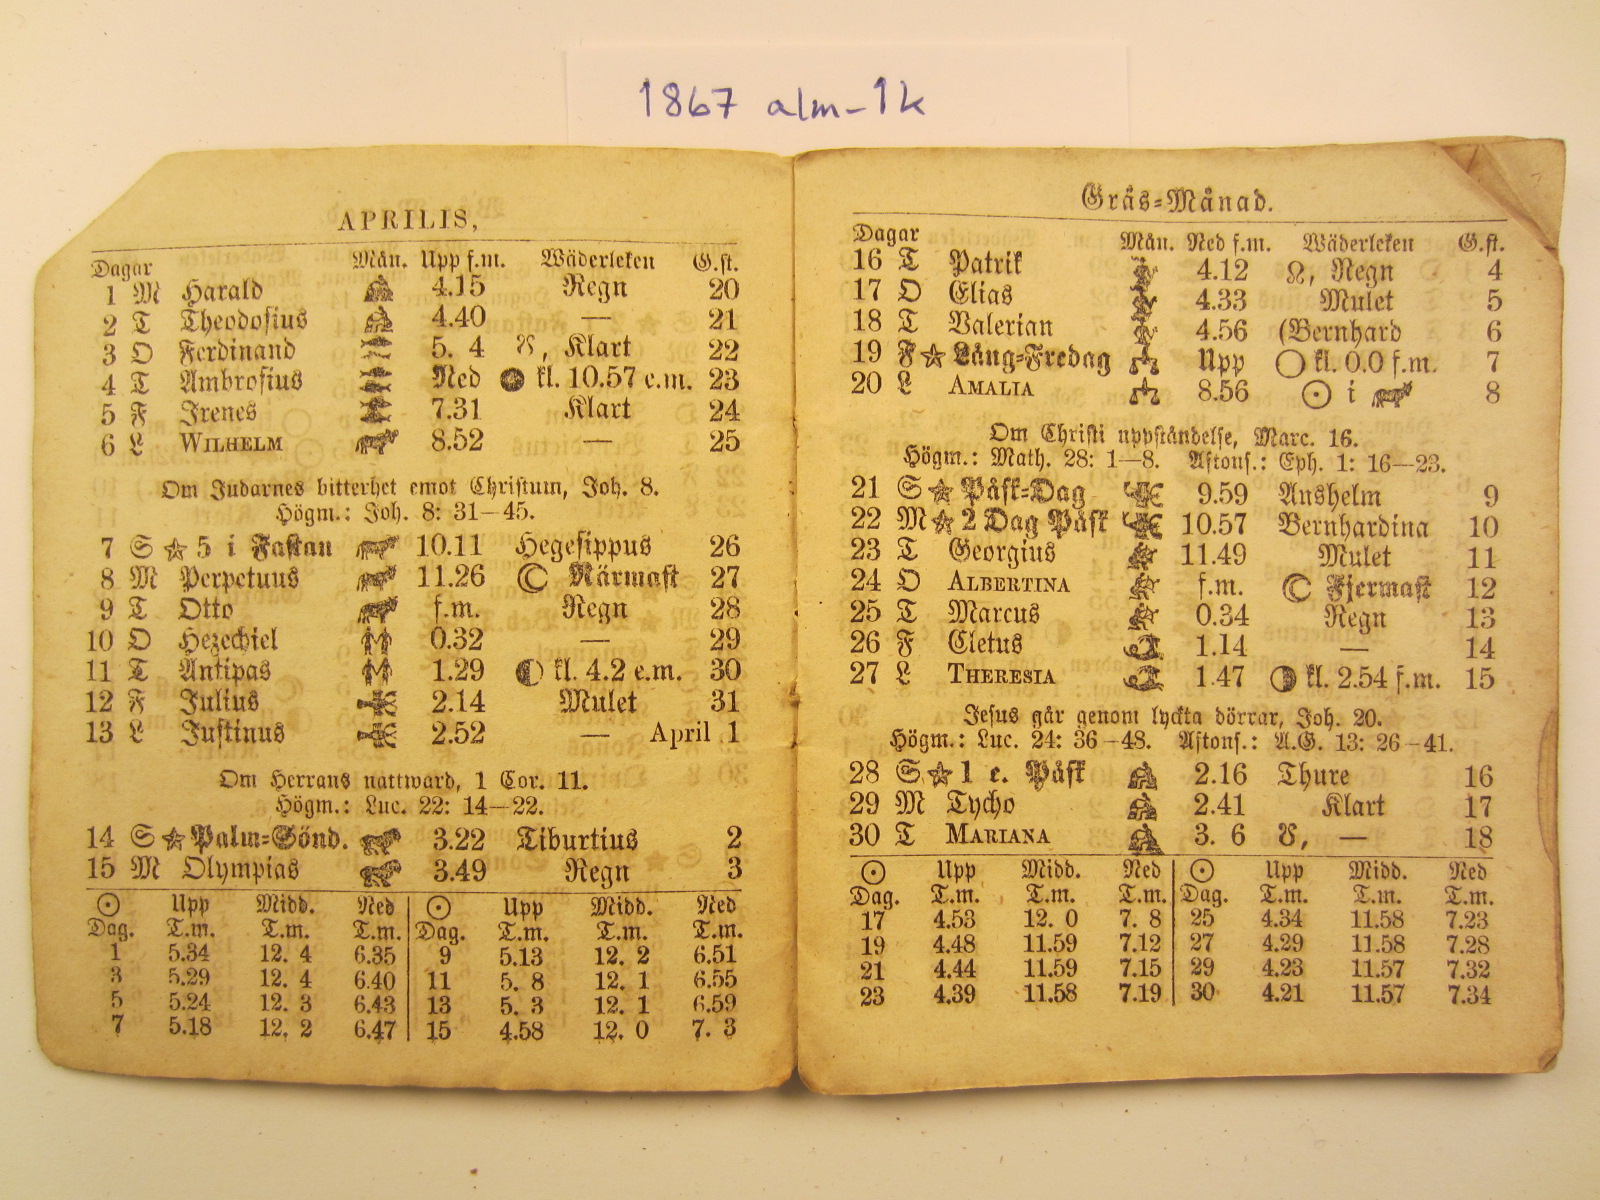 1867 alm-1k
APRILIS,
Dagar Mån. Upp f.m. Wäderleken G.st.
1 M Harald 4.15 Regn 20
2 T Theodosius 4.40 — 21
3 O Ferdinand 5. 4 ☋, Klart 22
4 T Ambrosius Ned ● kl. 10.57 e.m. 23
5 F Irenes 7.31 Klart 24
6 L WILHELM 8.52 — 25
Om Judarnes bitterhet emot Christum, Joh. 8.
Högm.: Joh. 8: 31—45.
7 S ☆ 5 i Fastan 10.11 Hegesippus 26
8 M Perpetuus 11.26 ☾ Närmast 27
9 T Otto f.m. Regn 28
10 O Hezechiel 0.32 — 29
11 T Antipas 1.29 ◐ kl. 4.2 e.m. 30
12 F Julius 2.14 Mulet 31
13 L Justinus 2.52 — April 1
Om Herrans nattward, 1 Cor. 11.
Högm.: Luc. 22: 14—22.
14 S ☆ Palm=Sönd. 3.22 Tiburtius 2
15 M Olympias 3.49 Regn 3
☉ Upp Midd. Ned ☉ Upp Midd. Ned
Dag. T.m. T.m. T.m. Dag. T.m. T.m. T.m.
1 5.34 12. 4 6.35 9 5.13 12. 2 6.51
3 5.29 12. 4 6.40 11 5. 8 12. 1 6.55
5 5.24 12. 3 6.43 13 5. 3 12. 1 6.59
7 5.18 12. 2 6.47 15 4.58 12. 0 7. 3
Gräs=Månad.
Dagar Mån. Ned f.m. Wäderleken G.st.
16 T Patrik 4.12 ☊, Regn 4
17 O Elias 4.33 Mulet 5
18 T Valerian 4.56 (Bernhard 6
19 F ☆ Lång=Fredag Upp ○ kl. 0.0 f.m. 7
20 L AMALIA 8.56 ☉ i 8
Om Christi uppståndelse, Marc. 16.
Högm.: Math. 28: 1—8. Aftons.: Eph. 1: 16—23.
21 S ☆ Påsk=Dag 9.59 Anshelm 9
22 M ☆ 2 Dag Påsk 10.57 Bernhardina 10
23 T Georgius 11.49 Mulet 11
24 O ALBERTINA f.m. ☾ Fjermast 12
25 T Marcus 0.34 Regn 13
26 F Cletus 1.14 — 14
27 L THERESIA 1.47 ◑ kl. 2.54 f.m. 15
Jesus går genom lyckta dörrar, Joh. 20.
Högm.: Luc. 24: 36—48. Aftons.: A.G. 13: 26—41.
28 S ☆ 1 e. Påsk 2.16 Thure 16
29 M Tycho 2.41 Klart 17
30 T MARIANA 3. 6 ☋, — 18
☉ Upp Midd. Ned ☉ Upp Midd. Ned
Dag. T.m. T.m. T.m. Dag. T.m. T.m. T.m.
17 4.53 12. 0 7. 8 25 4.34 11.58 7.23
19 4.48 11.59 7.12 27 4.29 11.58 7.28
21 4.44 11.59 7.15 29 4.23 11.57 7.32
23 4.39 11.58 7.19 30 4.21 11.57 7.34